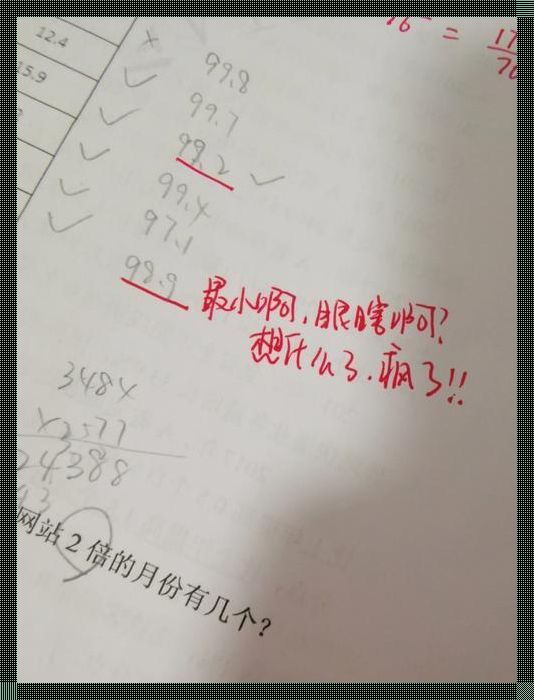 12.4
15.9
99.8
99.7
99.2
99.4
97.1
98.9
76 = 17
76
最小啊,眼瞎啊?
想什么了.疯了!!
3484
×2577
24388
网站2倍的月份有几个?